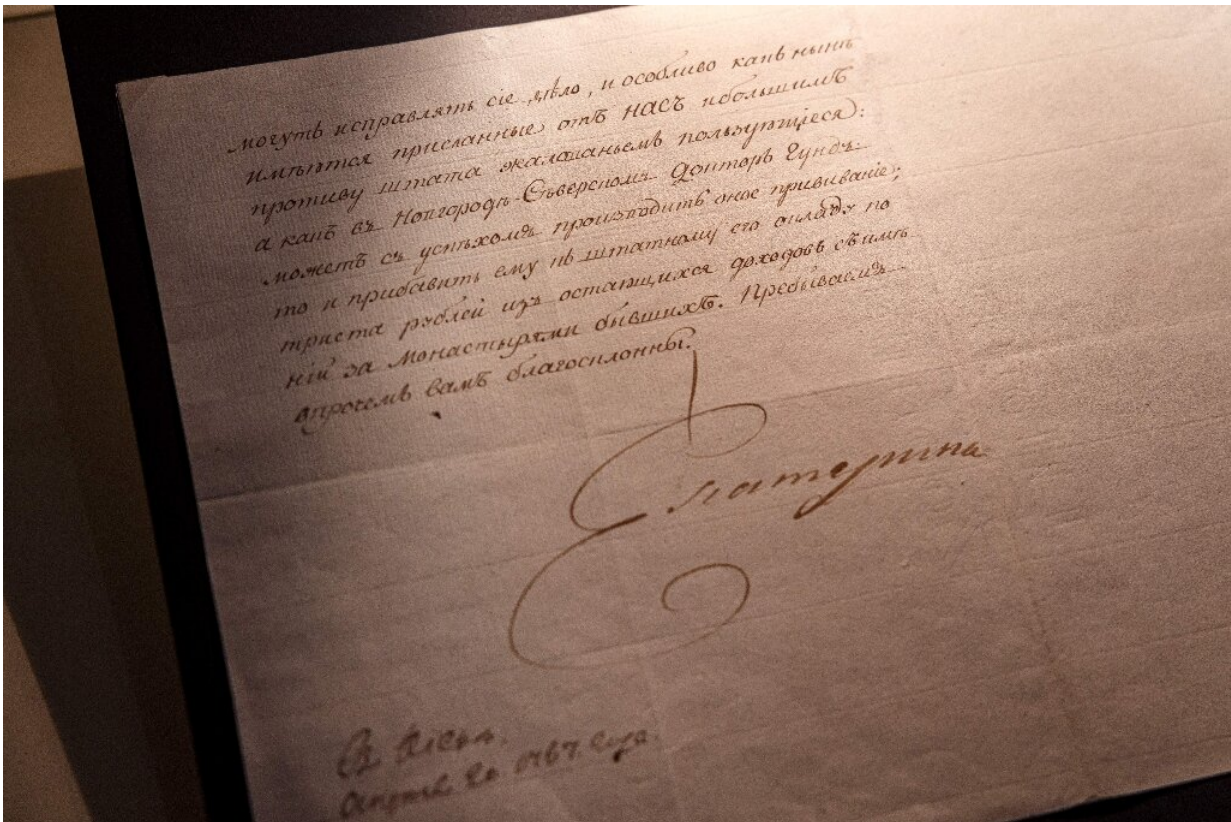 могутъ исправлять сіе дѣло, и особливо какъ нынѣ
имѣются присланные отъ НАСЪ небольшимъ
противу штата жалованьемъ пользующіеся:
а какъ въ Новгородѣ-Сѣверскомъ Докторъ Гундъ
можетъ съ успѣхомъ производить оное прививаніе;
то и прибавить ему къ штатному его окладу по
триста рублей изъ остающихся доходовъ съ имѣ
ній за монастырями бывшихъ. Пребываемъ
впрочемъ вамъ благосклонны.
Екатерина
Въ Кіевѣ.
Апрѣля 20 1787. года